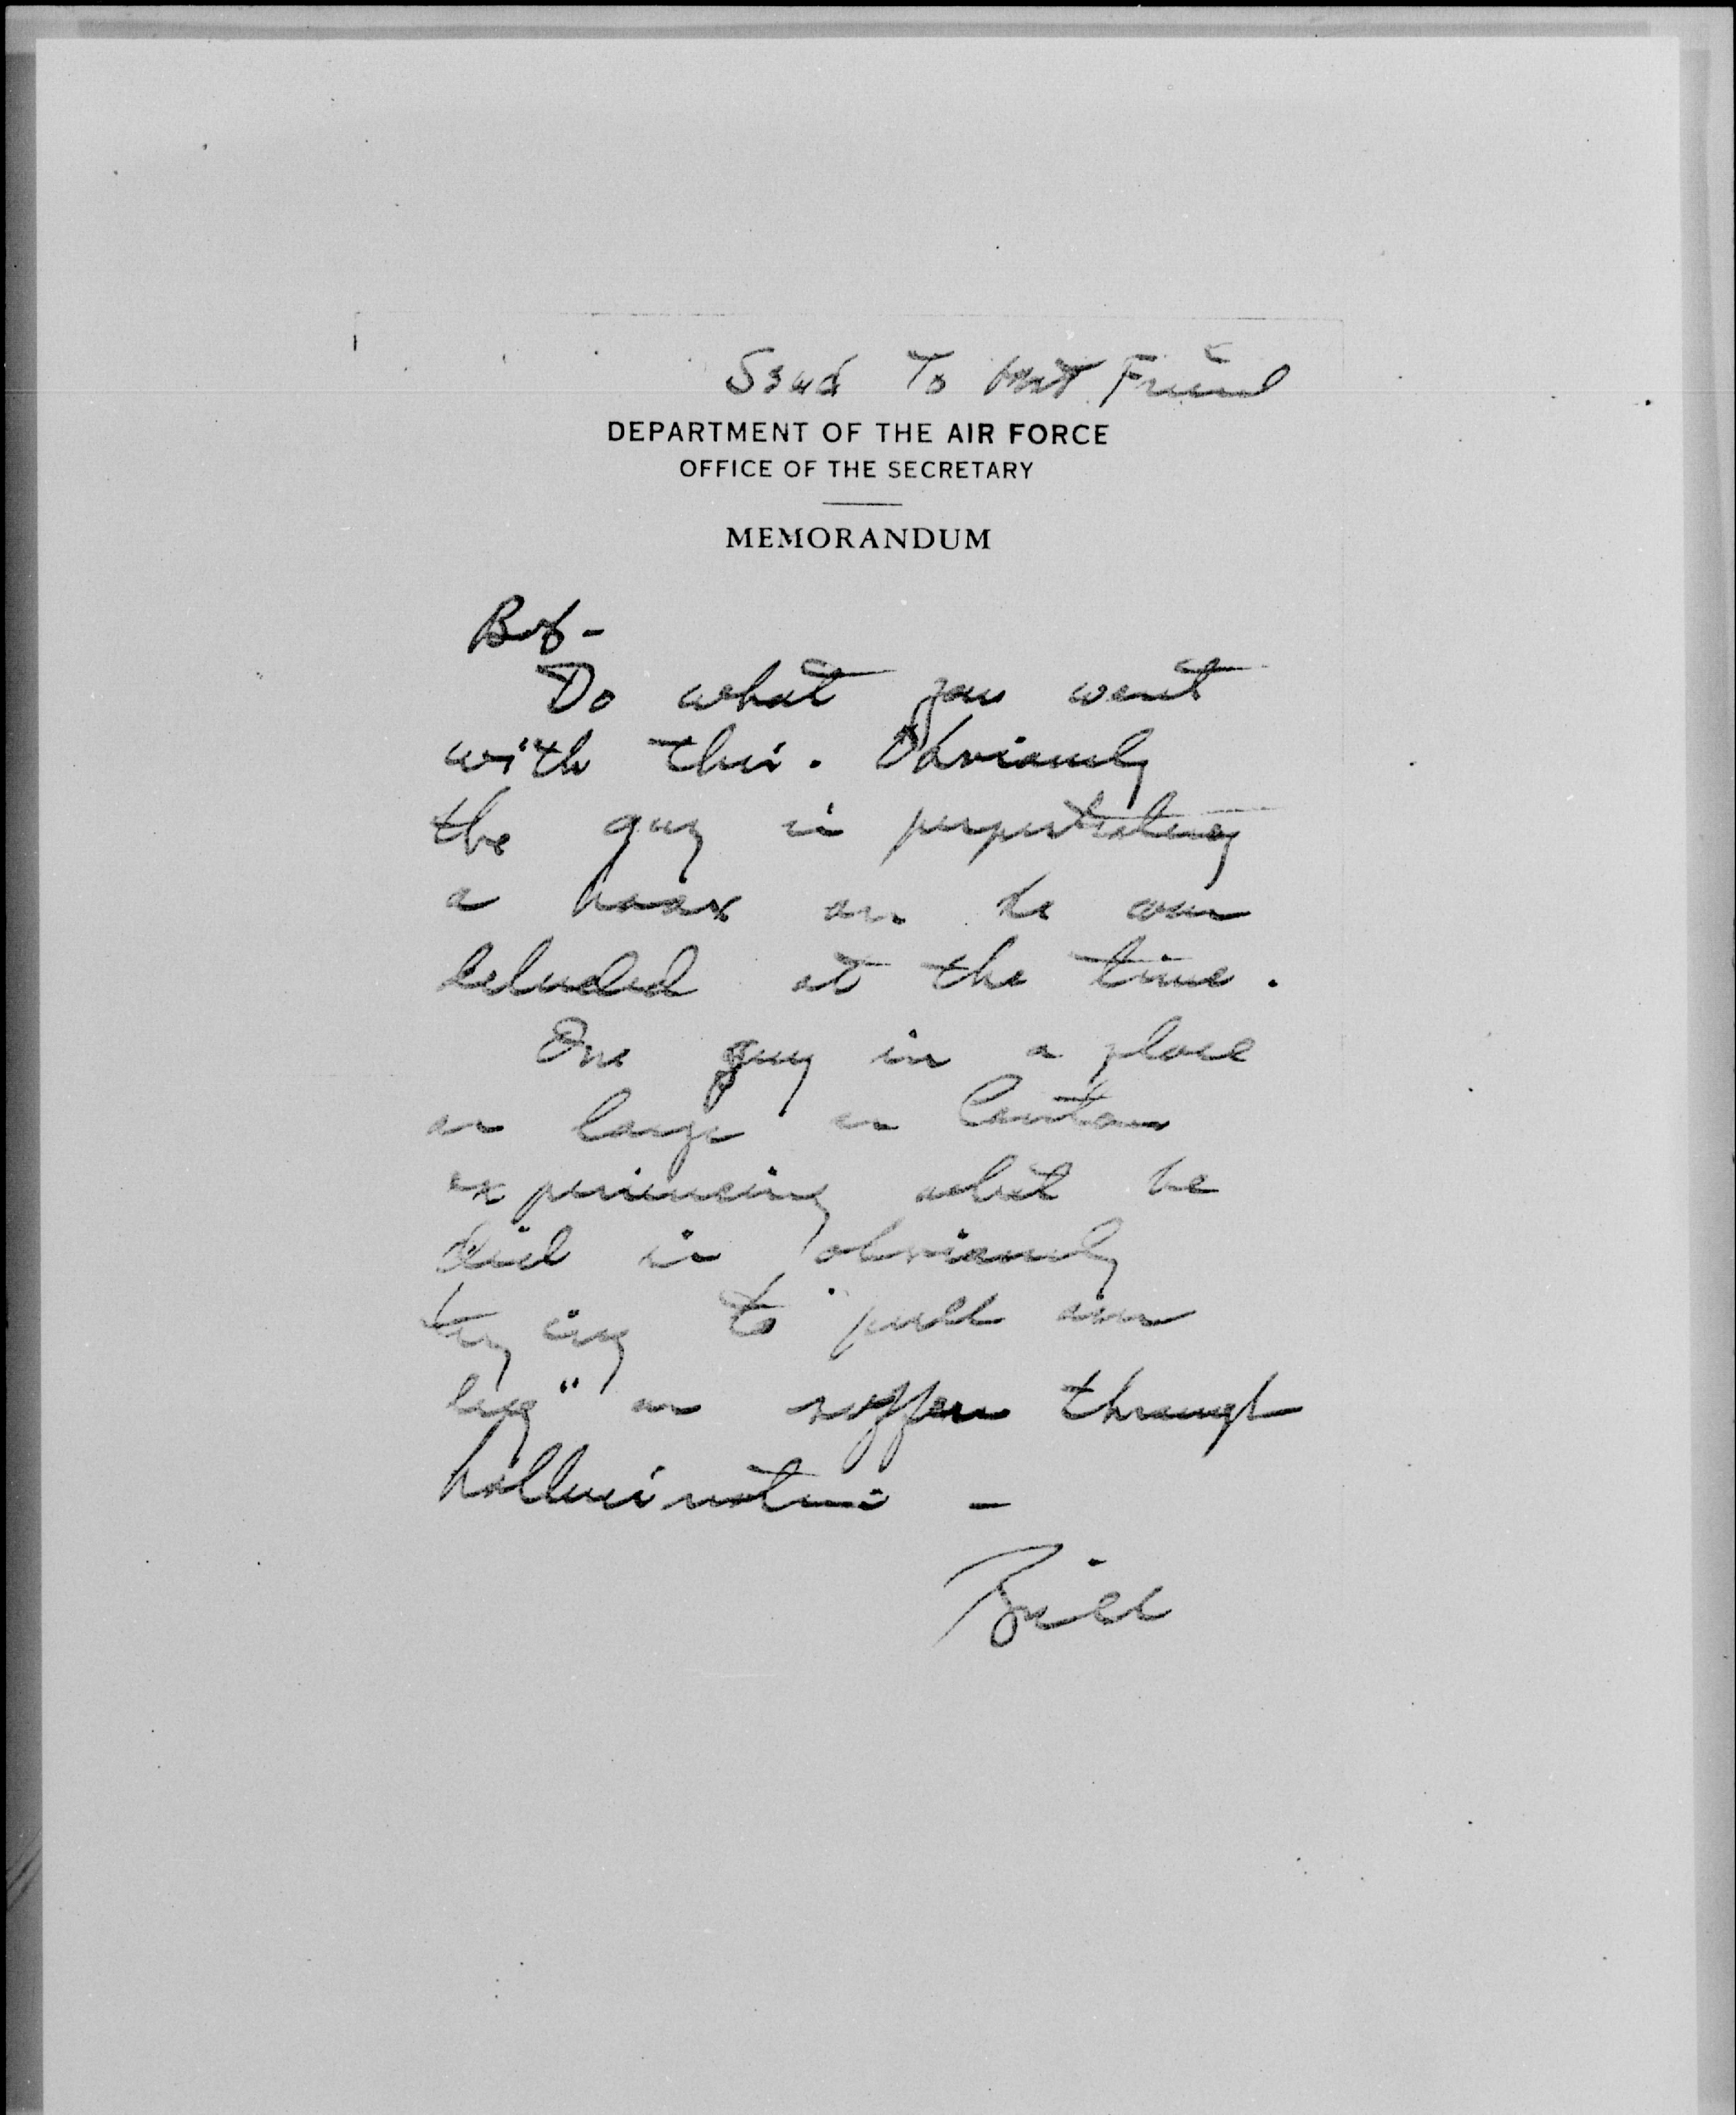 Send To Capt Friend
DEPARTMENT OF THE AIR FORCE
OFFICE OF THE SECRETARY
MEMORANDUM
Bob -
Do what you want
with this. Obviously
the guy is perpetrating
a hoax or he was
deluded at the time.
One guy in a place
as large as Canton
experiencing what he
did is obviously
trying to "pull our
leg" or suffers through
hallucinations -
Bill